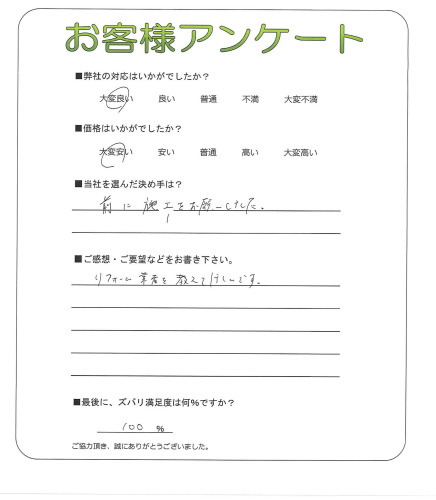 お客様アンケート
■弊社の対応はいかがでしたか？
大変良い 良い 普通 不満 大変不満
■価格はいかがでしたか？
大変安い 安い 普通 高い 大変高い
■当社を選んだ決め手は？
前に施工をお願いしました。
■ご感想・ご要望などをお書き下さい。
リフォーム業者を教えて
■最後に、ズバリ満足度は何％ですか？
100 %
ご協力頂き、誠にありがとうございました。